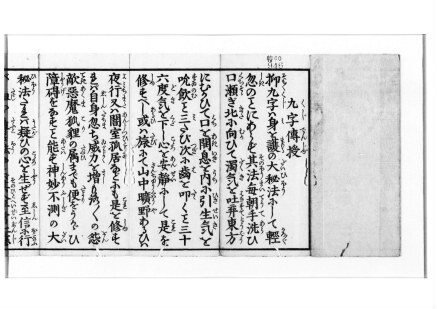 九字傳授
抑九字ハ身を護の大秘法にして輕
忽のことにあらず其法毎朝手洗ひ
口漱ぎ北に向ひて濁氣を吐弃東方
にむかひて口を閉息を内に引生氣を
吮飲こと三たび次に齒を叩くこと三十
六度氣を下し心を安靜にして是を
修すべし或ハ旅にて山中曠野あるひハ
夜行又ハ闇室孤居などにも是を修す
れバ自身忽ち威力を増り諸の怨
敵惡魔狐狸の属までも便をうかゞひ
障碍をなすこと能ず神妙不測の大
秘法なれバ疑ひの心を生ぜず至信に行